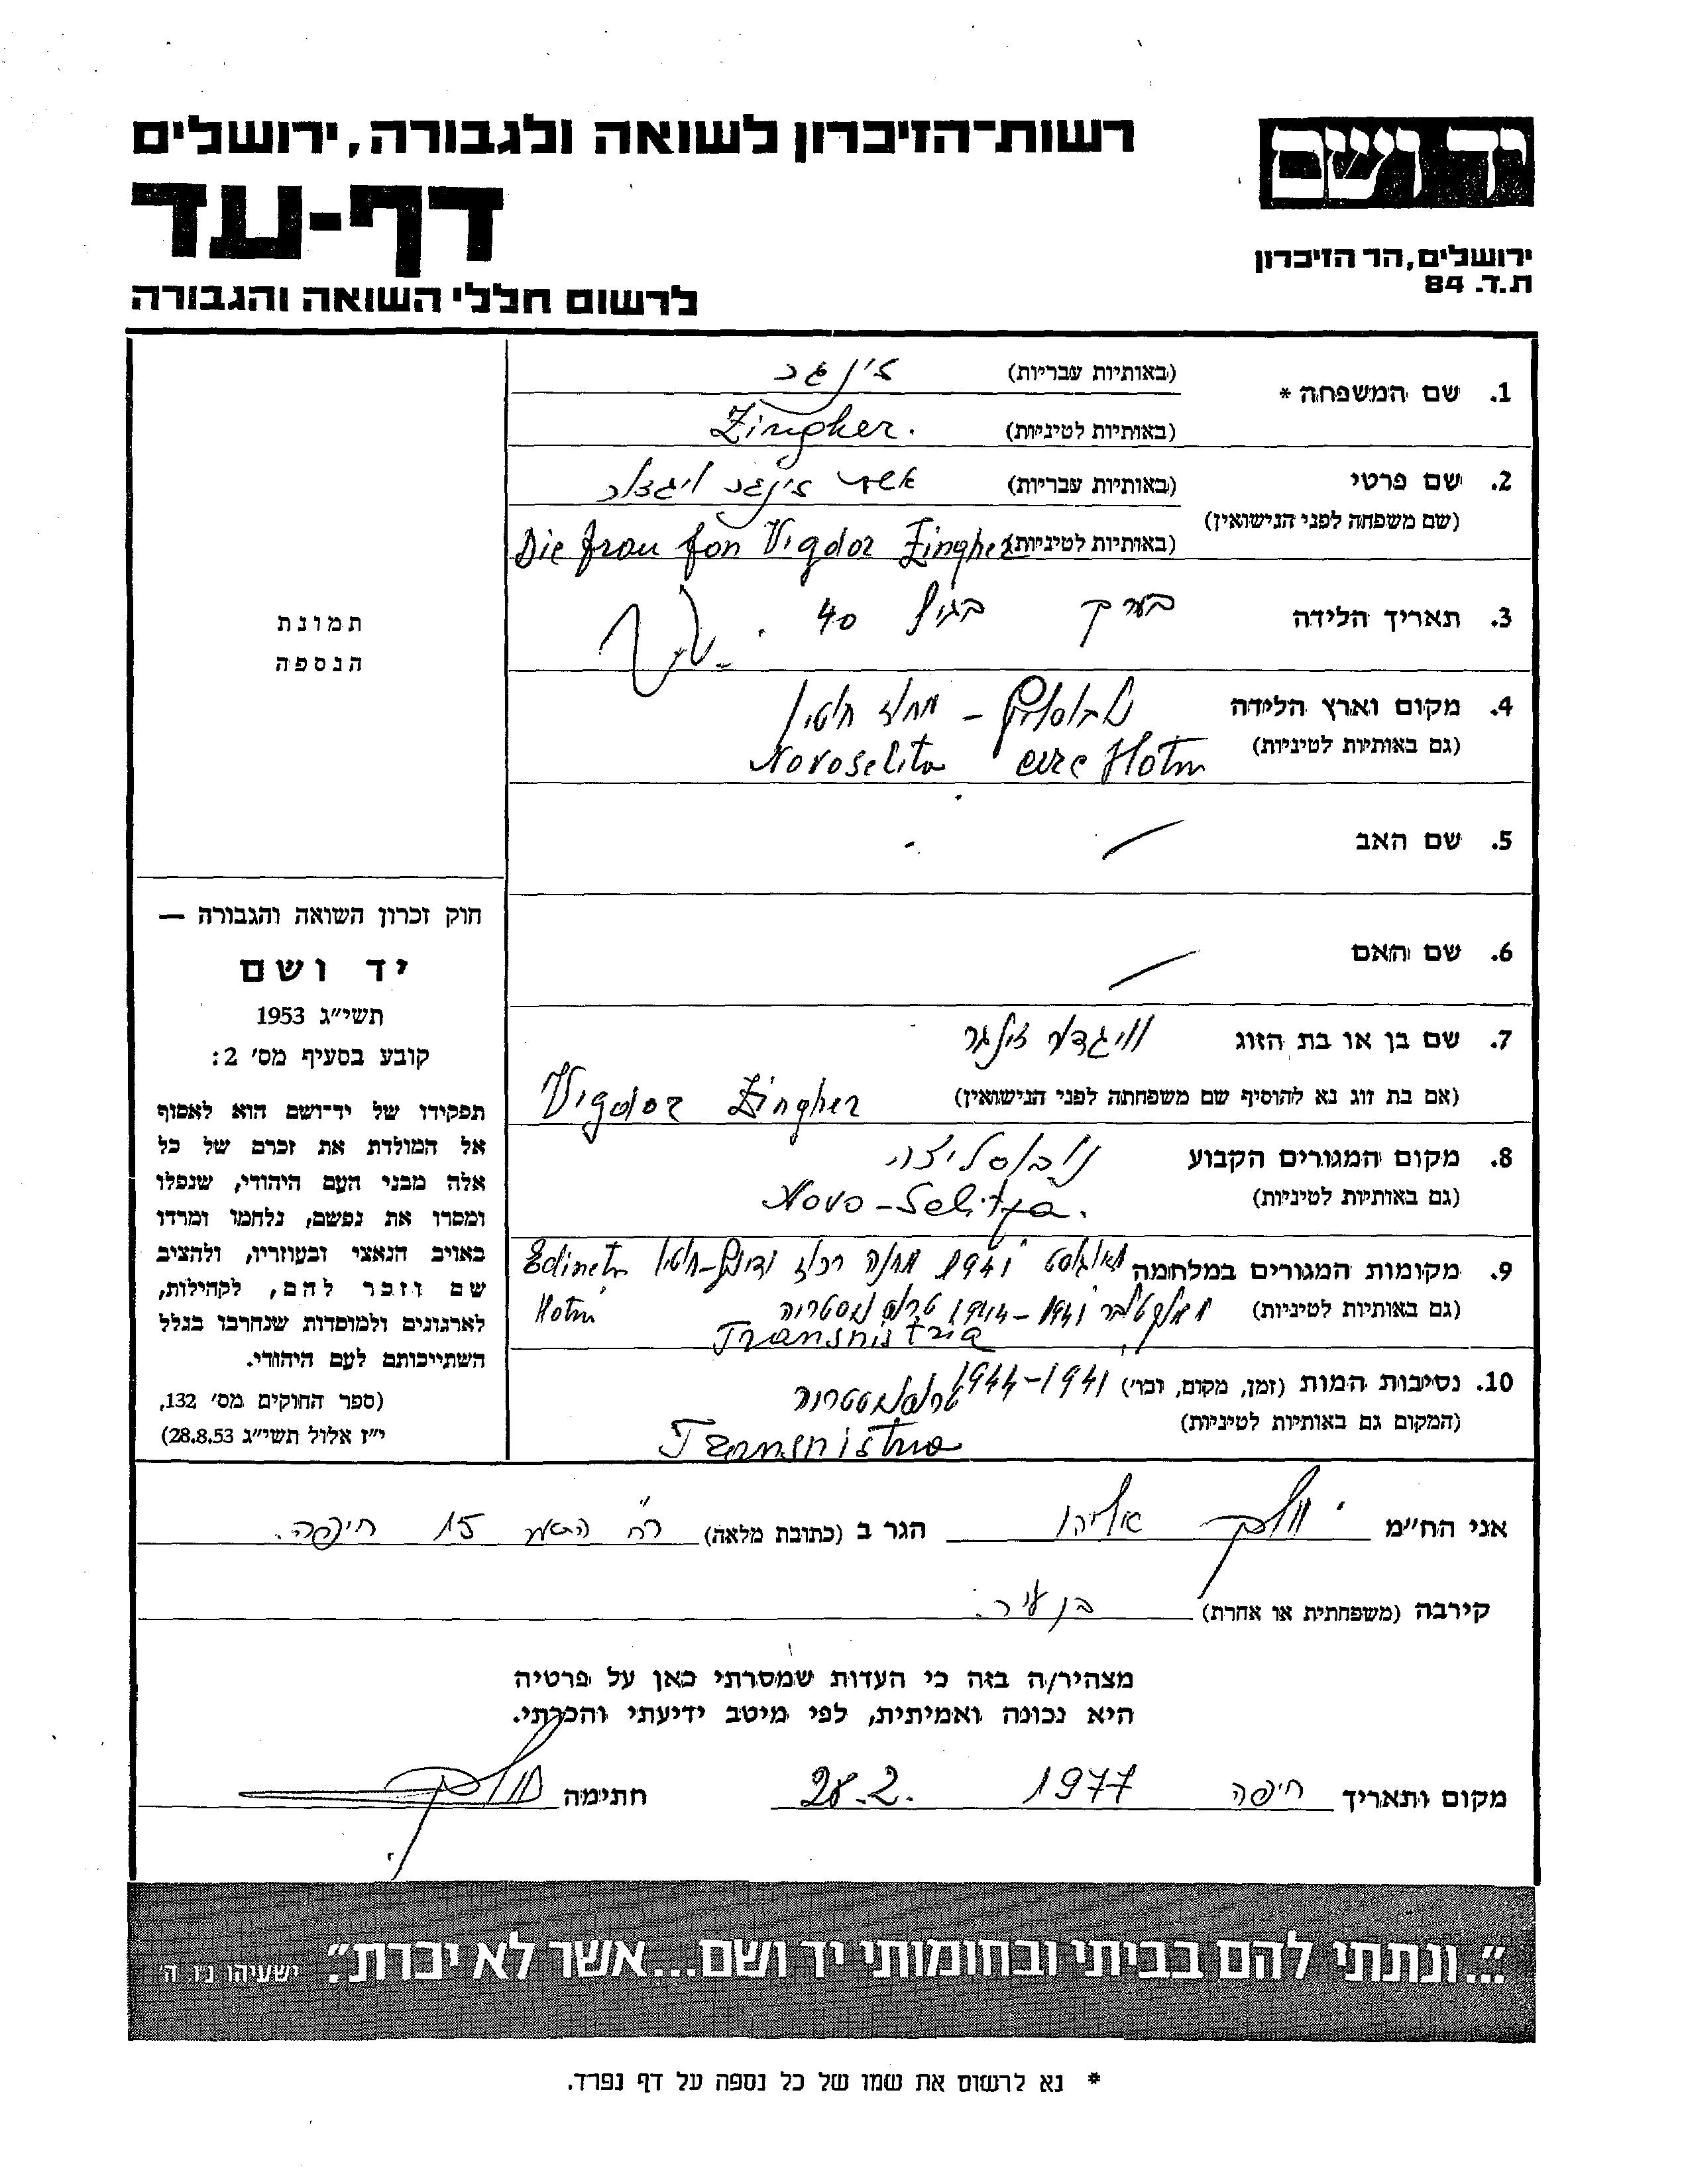 רשות־הזיכרון לשואה ולגבורה, ירושלים
יד ושם
דף-עד
ירושלים, הר הזיכרון
ת.ד. 84
לרשום חללי השואה והגבורה
1. שם המשפחה * (באותיות עבריות) זינגר
(באותיות לטיניות) Zingher.
2. שם פרטי (באותיות עבריות) אשת זינגר ויגדור
(שם משפחה לפני הנישואין)
(באותיות לטיניות) Die frau fon Vigdor Zingher
3. תאריך הלידה בערך בגיל 40.
4. מקום וארץ הלידה נובוסליצה – מחוז חוטין
(גם באותיות לטיניות) Novoselita Hotin
5. שם האב
6. שם האם
7. שם בן או בת הזוג וויגדור זינגר
(אם בת זוג נא להוסיף שם משפחתה לפני הנישואין) Vigdor Zingher
8. מקום המגורים הקבוע נובוסליצה
(גם באותיות לטיניות) Novo-Selitza.
9. מקומות המגורים במלחמה אוגוסט 1941 מחנה Edinetz
(גם באותיות לטיניות) 1941-1944 טרנסניסטריה Hotin
Transnistria
10. נסיבות המות (זמן, מקום, וכו') 1941-1944
טרנסניסטריה
(המקום גם באותיות לטיניות)
Transnistria
תמונת
הנספה
חוק זכרון השואה והגבורה —
יד ושם
תשי״ג 1953
קובע בסעיף מס׳ 2:
תפקידו של יד־ושם הוא לאסוף
אל המולדת את זכרם של כל
אלה מבני העם היהודי, שנפלו
ומסרו את נפשם, נלחמו ומרדו
באויב הנאצי ובעוזריו, ולהציב
שם וזכר להם, לקהילות,
לארגונים ולמוסדות שנחרבו בגלל
השתייכותם לעם היהודי.
(ספר החוקים מס׳ 132,
י״ז אלול תשי״ג 28.8.53)
אני הח״מ אליהו הגר ב (כתובת מלאה) רח׳ 15 חיפה.
קירבה (משפחתית או אחרת) בן עיר.
מצהיר/ה בזה כי העדות שמסרתי כאן על פרטיה
היא נכונה ואמיתית, לפי מיטב ידיעתי והכרתי.
מקום ותאריך חיפה 1977 28.2. חתימה
״...ונתתי להם בביתי ובחומותי יד ושם...אשר לא יכרת״. ישעיהו נ״ו. ה׳
* נא לרשום את שמו של כל נספה על דף נפרד.